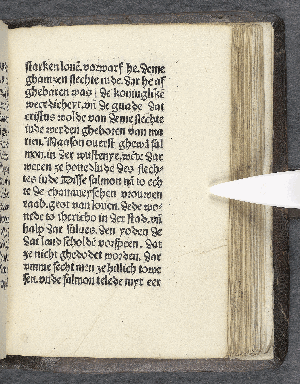 starken louē. vorwarf he. deme
ghantzen slechte iude. dar he af
ghebaren was / de koninglike
werdicheyt. vñ de gnade dat
cristus wolde van deme slechte
iude werden gheboren van ma
rien. Naason ouerst ghewā sal
mon. in der wustenye. wēte dar
weren ze houedlude des slech-
tes iude Disse salmon nā to ech
te de chananeyschen vrouwen
raab. geot van louen. dede wo-
nede to ihericho in der stad. vñ
halp dar salues. den yoden de
dat land scholdē vorspeen. dat
ze nicht ghedodet worden. dar
vmme secht men ze hillich towe
sen. vnde salmon telede myt eer